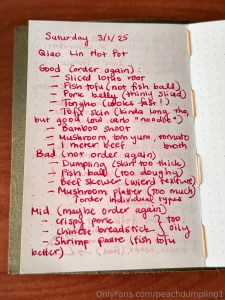 Saturday 3/1/25
Qiao Lin Hot Pot
Good (order again):
- Sliced lotus root
- Fish tofu (not fish ball)
- Pork belly (thinly sliced)
- Tongho (cooks fast!)
- Tofu skin (kinda long tho,
but good low carb "noodle")
- Bamboo shoot
- Mushroom, tom yum, tomato
broth
- 1 meter beef
Bad (not order again)
- Dumpling (skin too thick)
- Fish ball (too doughy)
- Beef skewer (weird texture)
- Mushroom platter (too much)
↑ order individual types
Mid (maybe order again)
- crispy pork
- chinese breadstick
} too oily
- Shrimp paste (fish tofu
better)
OnlyFans.com/peachdumpling1